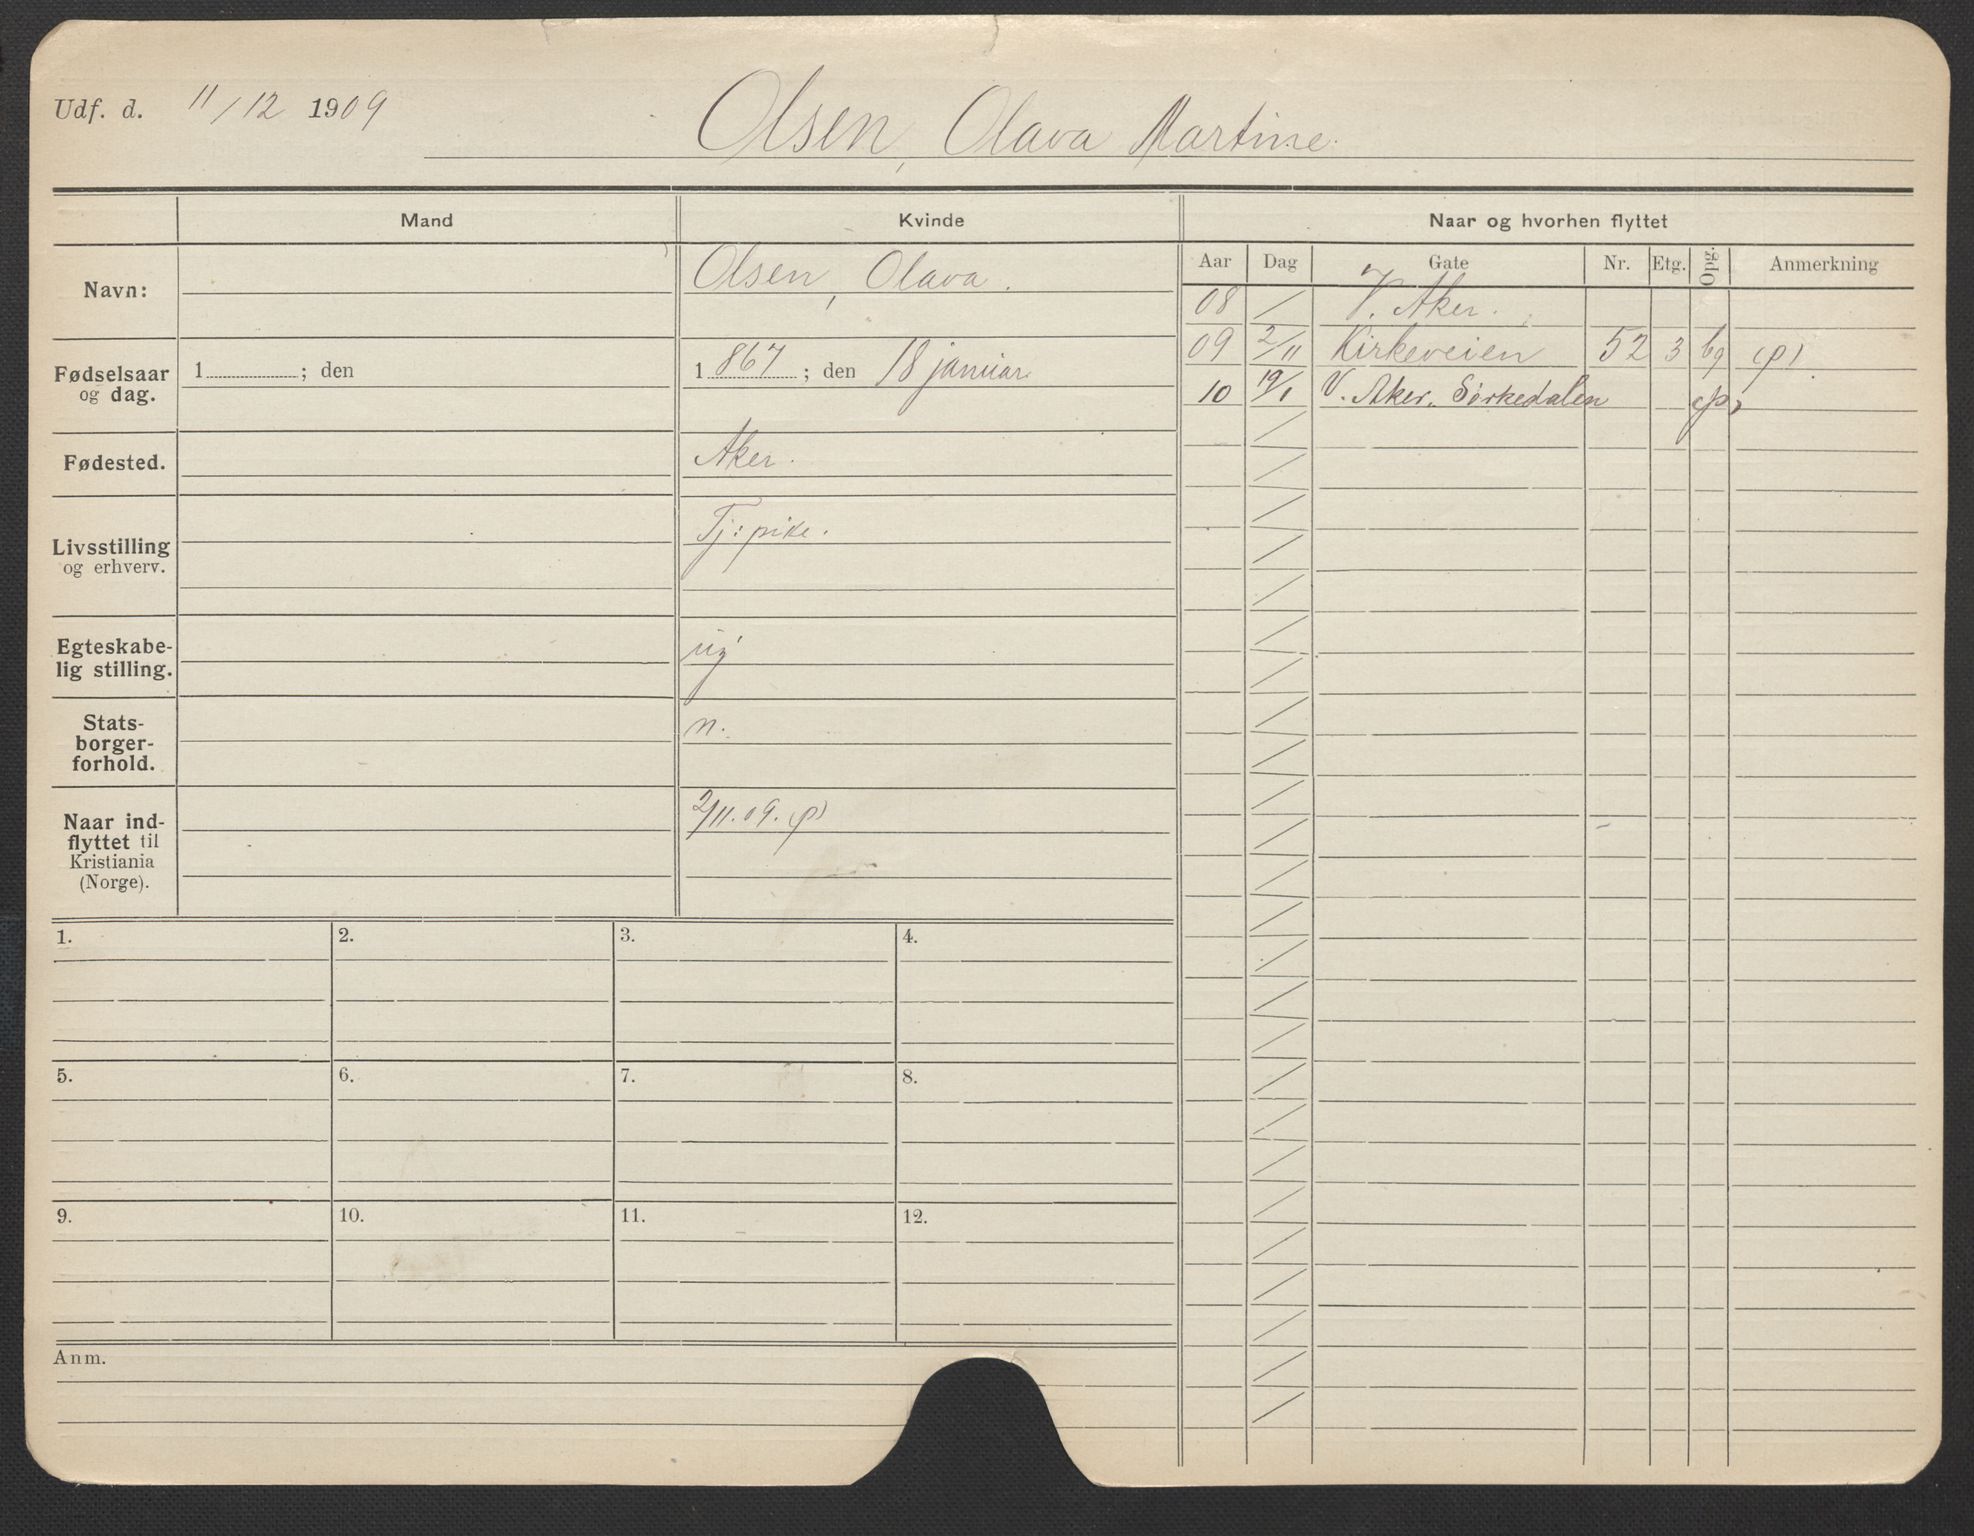 Udf. d. 11/12 1909 Olsen, Olava Martine.
Mand Kvinde Naar og hvorhen flyttet
Aar Dag Gate Nr. Etg. Opg. Anmerkning
Navn: Olsen, Olava.
08 / V. Aker.
09 2/11 Kirkeveien 52 3 bg (p)
10 19/1 V. Aker, Sørkedalen (p)
Fødselsaar
og dag.
1 ; den 1867 ; den 18 januar
Fødested. Aker.
Livsstilling
og erhverv.
Tj: pike.
Egteskabe-
lig stilling.
ug
Stats-
borger-
forhold.
n.
Naar ind-
flyttet til
Kristiania
(Norge).
2/11.09. (p)
1. 2. 3. 4.
5. 6. 7. 8.
9. 10. 11. 12.
Anm.